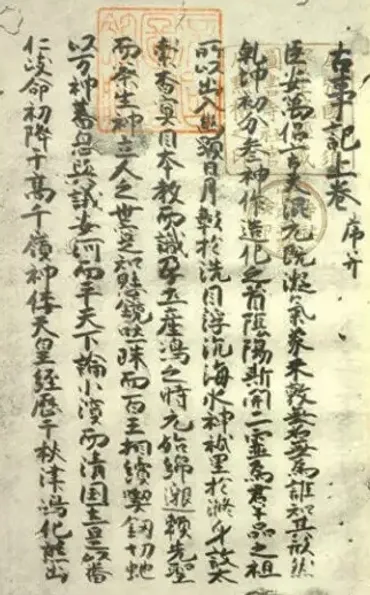 古事記上巻 序并
臣安萬侶言夫混元既凝氣象未敦無名無為誰知其形然
乾坤初分参神作造化之首陰陽斯開二霊為群品之祖
所以出入幽顕日月彰於洗目浮沈海水神祇呈於滌身故太
素杳冥因本教而識孕土産嶋之時元始綿邈頼先聖
而察生神立人之世寔知懸鏡吐珠而百王相續喫釼切蛇
以万神蕃息與議安河而平天下論小濱而清国土是以番
仁岐命初降于高千嶺神倭天皇経歴于秋津嶋化熊出